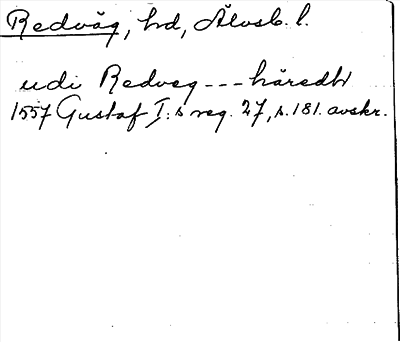 Redväg, hd, Älvsb. l.
udi Redveg --- häredt
1557 Gustaf I:s reg. 27, s. 181. avskr.